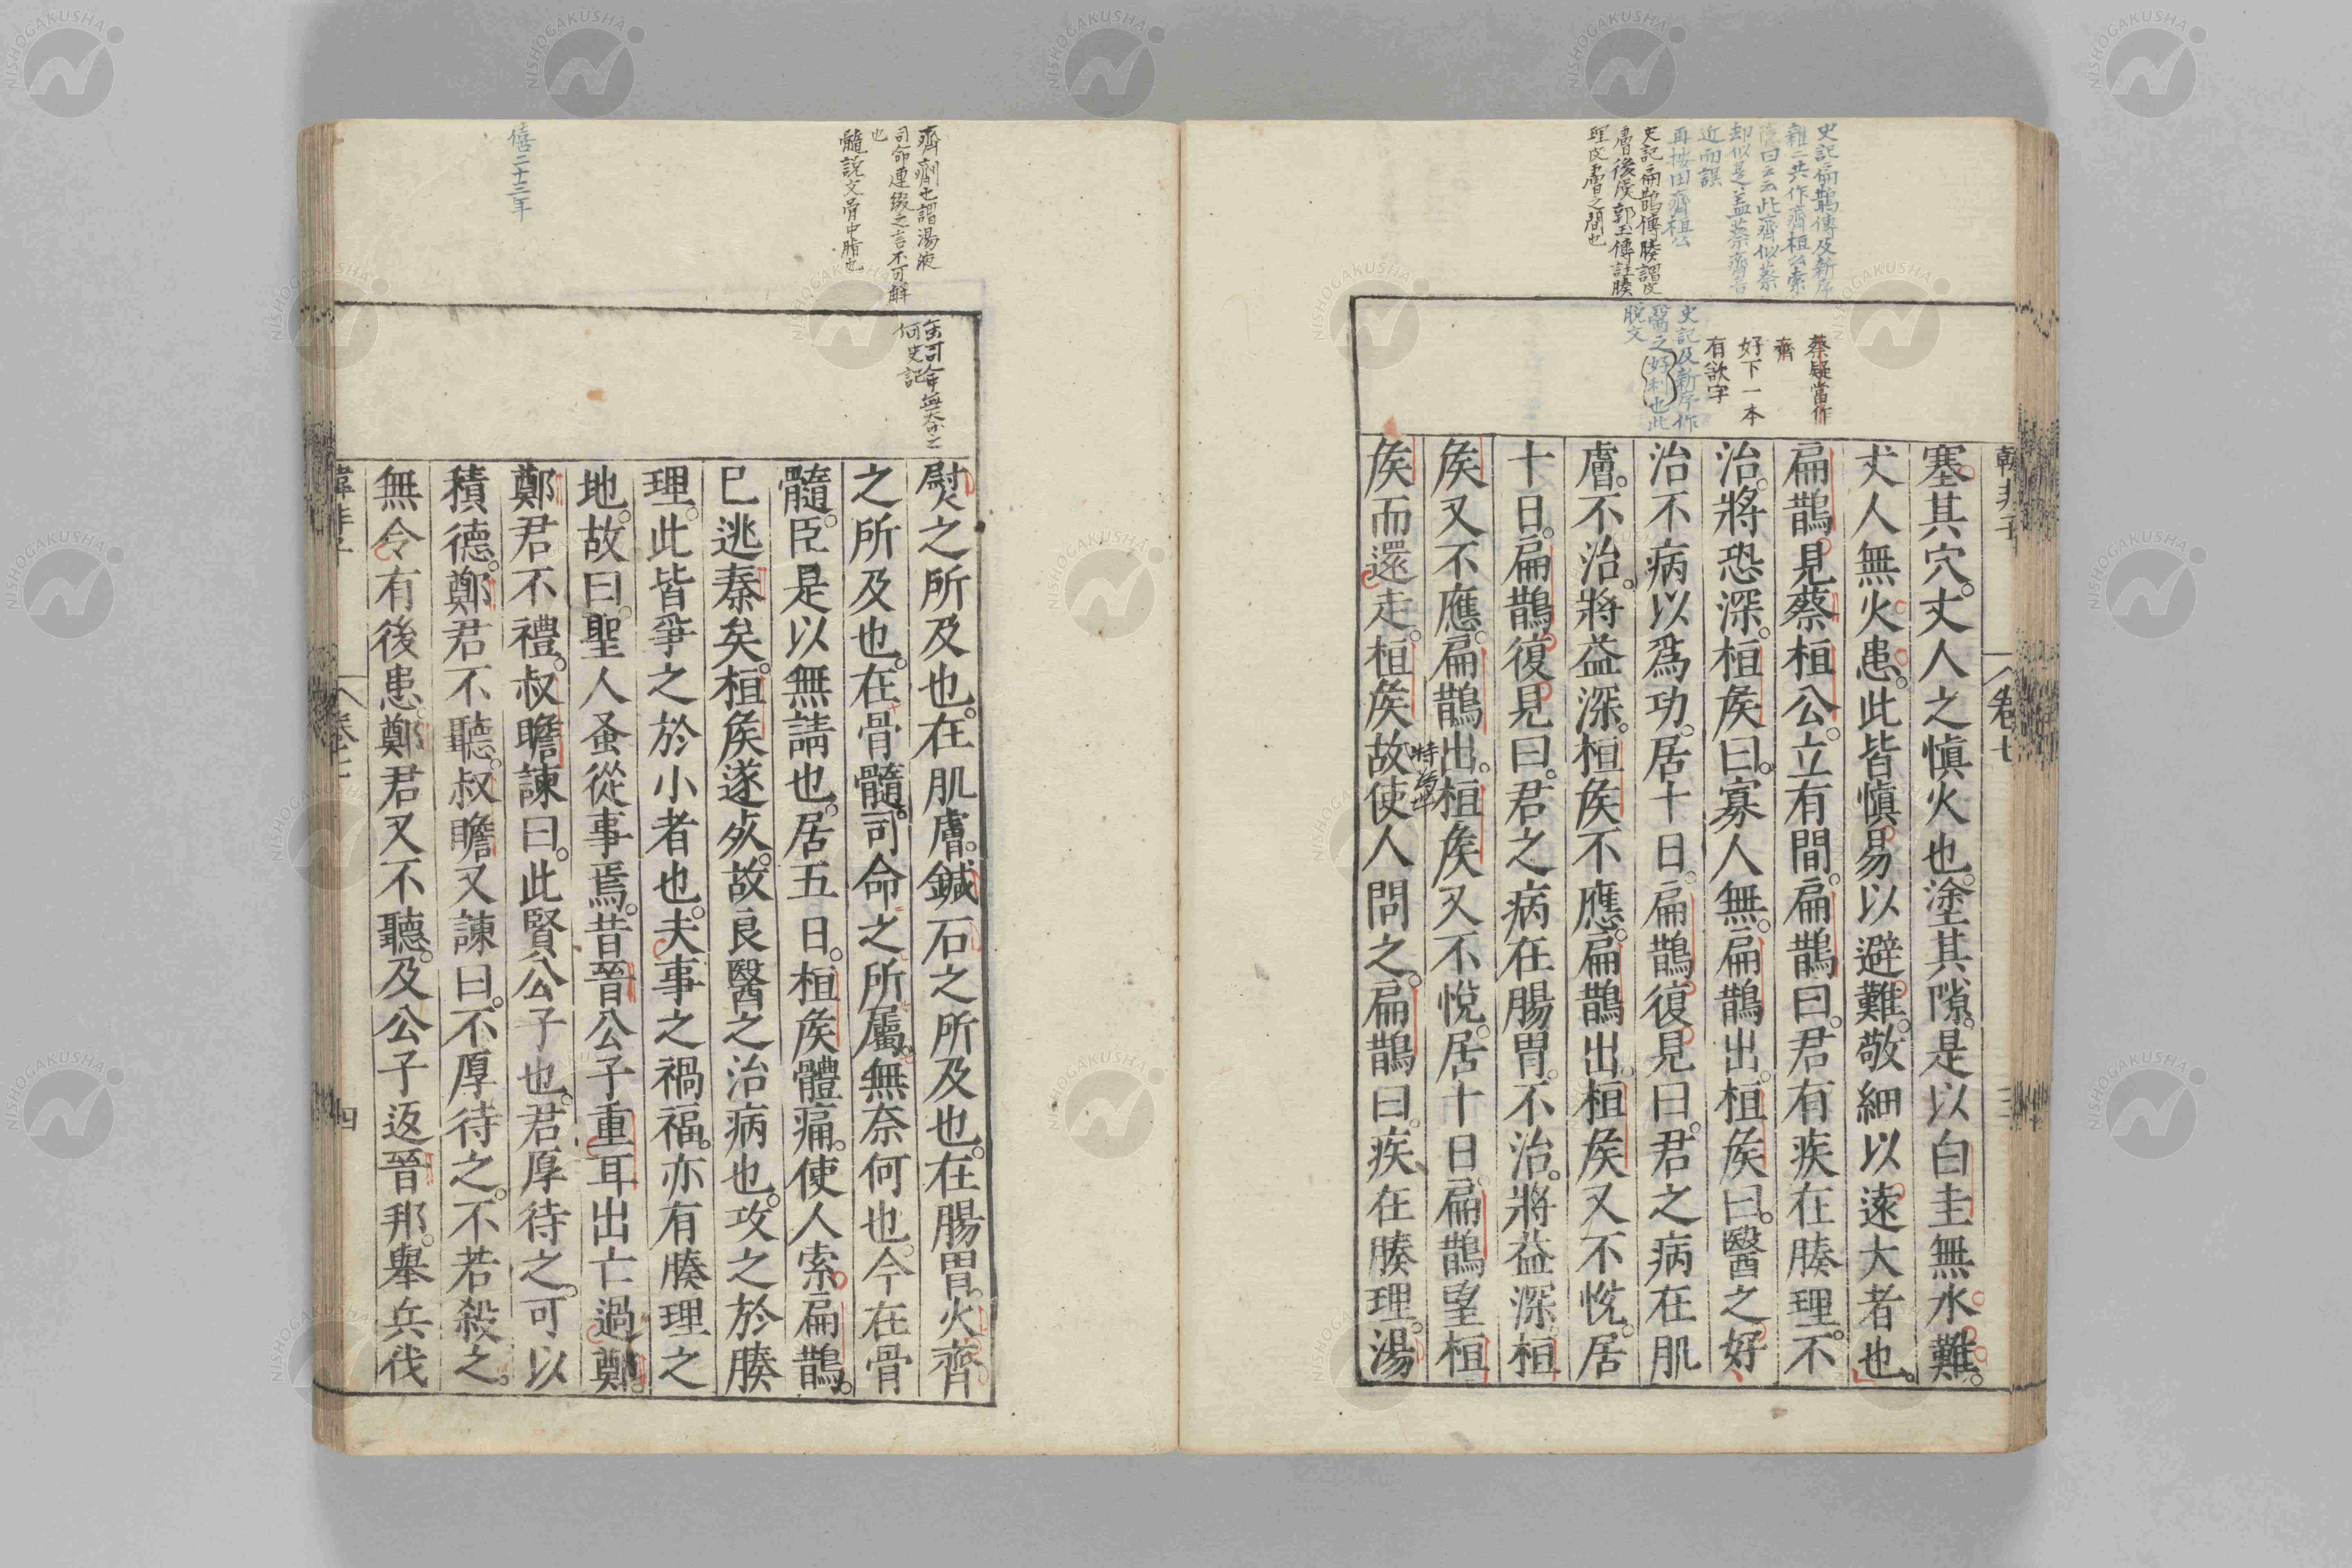 韓非子
卷七
三
史記扁鵲傳及新序
雜二共作齊桓公索
隱曰云云此齊似蔡
却似是蓋蔡齊音
近而誤
再按田齊桓公
史記扁鵲傳腠謂皮
膚後漢郭玉傳註腠
理皮膚之間也
蔡疑當作
齊
好下一本
有欲字
史記及新序作
醫之好利也此
脫文
塞其穴。丈人之慎火也。塗其隙。是以白圭無水難。
丈人無火患。此皆慎易以避難。敬細以遠大者也。
扁鵲見蔡桓公。立有間。扁鵲曰。君有疾在腠理。不
治。將恐深。桓矦曰。寡人無。扁鵲出。桓矦曰。醫之好
治不病以爲功。居十日。扁鵲復見曰。君之病在肌
膚。不治。將益深。桓矦不應。扁鵲出。桓矦又不悅。居
十日。扁鵲復見曰。君之病在腸胃。不治。將益深。桓
矦又不應。扁鵲出。桓矦又不悅。居十日。扁鵲望桓
矦而還走。桓矦故使人問之。扁鵲曰。疾在腠理。湯
齊劑也謂湯液
司命連綴之言不可解
也
髓說文骨中脂也
僖二十三年
何史記
熨之所及也。在肌膚。鍼石之所及也。在腸胃。火齊
之所及也。在骨髓。司命之所屬。無奈何也。今在骨
髓。臣是以無請也。居五日。桓矦體痛。使人索扁鵲。
已逃秦矣。桓矦遂死。故良醫之治病也。攻之於腠
理。此皆爭之於小者也。夫事之禍福。亦有腠理之
地。故曰。聖人蚤從事焉。昔晉公子重耳出亡過鄭。
鄭君不禮。叔瞻諫曰。此賢公子也。君厚待之。可以
積德。鄭君不聽。叔瞻又諫曰。不厚待之。不若殺之。
無令有後患。鄭君又不聽。及公子返晉邦。舉兵伐
四
NISHOGAKUSHA